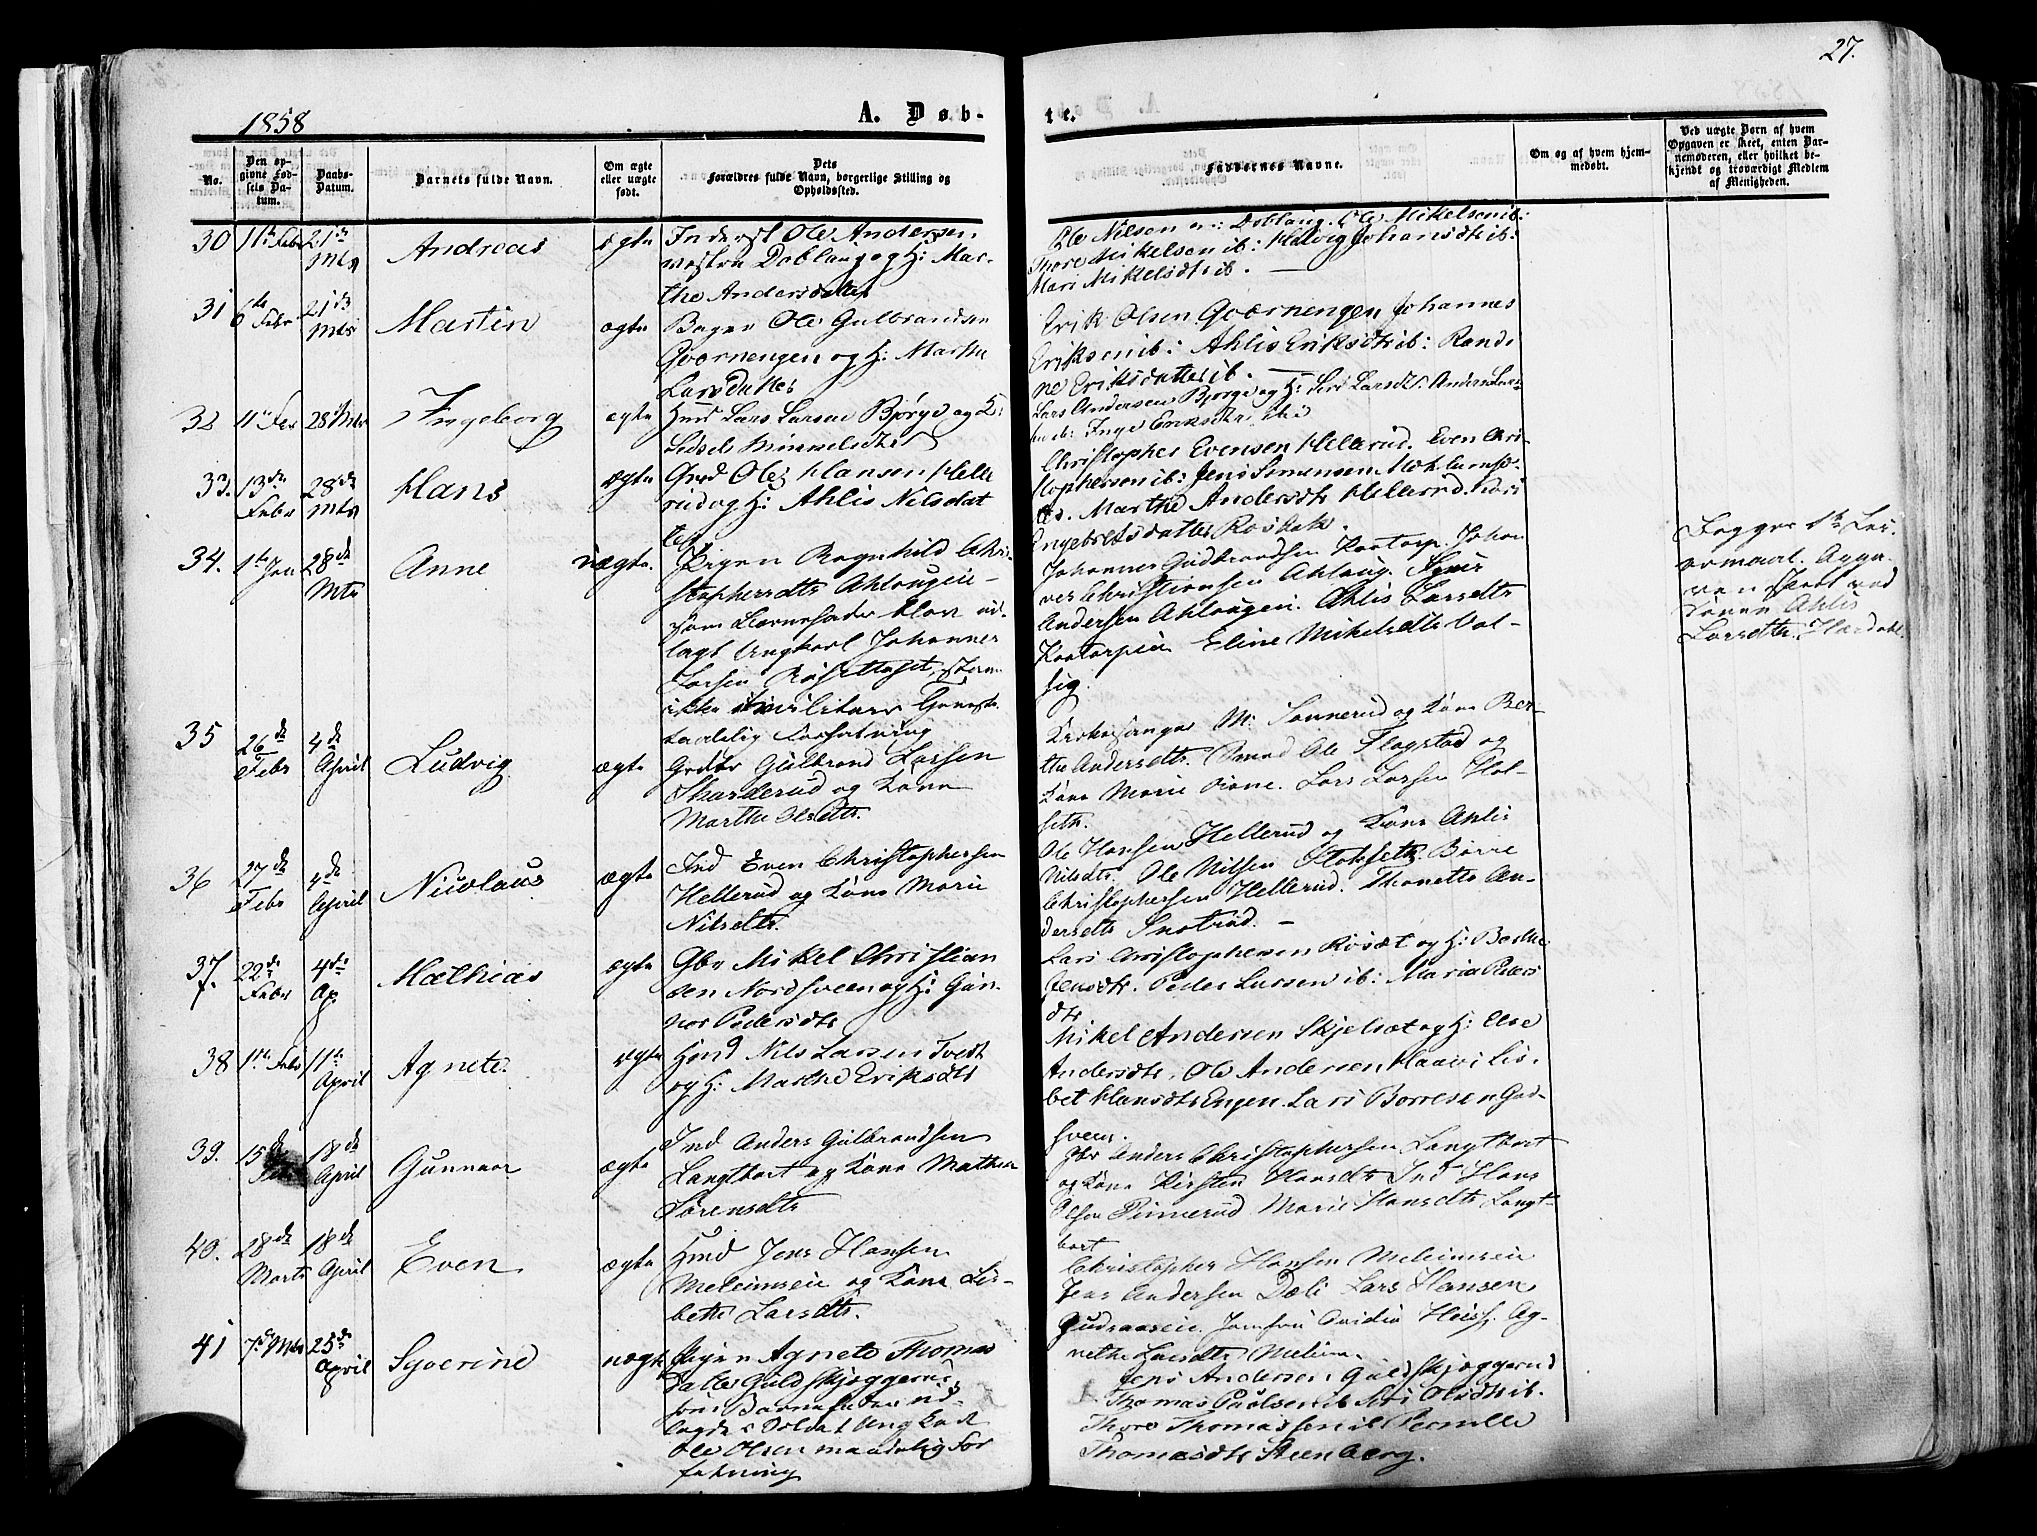 27.
1858
A. Døb-
te.
No.
Den opgivne Fødsels Datum.
Daabs-Datum.
Barnets fulde Navn.
Om ægte eller uægte født.
Dets Forældres fulde Navn, borgerlige Stilling og Opholdssted.
Faddernes Navne.
Om og af hvem hjemmedøbt.
Ved uægte Børn af hvem Opgaven er skeet, enten Barnemoderen, eller hvilket bekjendt og troværdigt Medlem af Menigheden.
30 11te Febr 21de Mts Andreas ægte
Inderst Ole Andersen
vestre Doblaug og H: Mar-
the Andersdatter
Ole Nilsen Doblaug. Ole Mikelsen ib:
Thore Mikelsen ib: Helvig Johansdtr ib:
Mari Mikelsdtr ib. —
31 6te Febr 21de Mts Martin ægte
Ole Gulbrandsen
Qværnengen og H: Marthe
Larsdatter
Erik Olsen Qværnengen Johannes
Eriksen ib: Ahlis Eriksdtr ib: Randi
ne Eriksdatter ib. —
32 11te Febr 28de Mts Ingeborg ægte
Hmd Lars Larsen Bjørge og K:
Sidsel Himmelsdtr
Lars Andersen Bjørge og H: Siri Larsdtr. Anders Lar-
sen ib: Inge Eriksdtr ib:
33. 13de Febr 28de Mts Hans ægte
Grd Ole Hansen Helle
rud og H: Ahlis Nilsdat
ter
Christopher Evensen Hellerud. Even Chri-
stophersen ib: Jens Simensen
Marthe Andersdtr Hellerud. Kari
Engebretsdatter Rosbak.
34. 1ste Jan 28de Mts Anne uægte.
Pigen Ragnhild Chri-
stophersdtr Ahlaugeie –
som Barnefader blev ud-
lagt Ungkarl Johannes
Larsen Røsettroset,
ikke militair
Johannes Gudbrandsen Kaatorp. Johan
nes Christiansen Ahlaug.
Andersen Ahlaugeie. Ahlis Larsdtr
Kaatorpeie Eline Mikelsdtr Val-
sig.
Begges 1ste Lei-
ermaal. Opga-
ven skeet ved
Konen Ahlis
Larsdtr.
35 26de Febr 4de April Ludvig ægte
Grdbr Gulbrand Larsen
Skarderud og Kone
Marthe Olsdtr.
Kirkesanger M: Sønnerud og Kone Ber-
the Andersdtr. Ole Flagstad og
Kone Marie Lars Larsen Hol-
seth.
36 27de Febr 4de April Nicolaus ægte
Ind Even Christophersen
Hellerud og Kone Marie
Nilsdtr.
Ole Hansen Hellerud og Kone Ahlis
Nilsdtr. Ole Nilsen Børre
Christophersen Hellerud. Thonette An-
dersdtr Snotrud. —
37. 22de Febr 4de Ap Mathias ægte
Gbr Mikel Christian
sen Nordsveen og H: Gun-
nor Pedersdtr
Lars Christophersen Røsæt og H: Berthe
Jensdtr. Peder Larsen ib: Maria Peders
dtr
38 1ste Febr 11te April Agnete. ægte
Hmd Nils Larsen Tvedt
og H: Marthe Eriksdtr
Mikel Andersen Skjelsæt og H: Else
Andersdtr. Ole Andersen Haavi Lis-
bet Hansdtr Engen. Lars Børresen God-
sveen.
39. 15de Febr 18de April Gunnar ægte
Ind Anders Gulbrandsen
Langtbort og Kone Mathea
Sørensdtr
Gbr Anders Christophersen Langtbort
og Kone Kirsten Hansdtr Ind Hans
Olsen Pinnerud Marie Hansdtr Langt-
bort
40. 28de Marts 18de April Even ægte
Hmd Jens Hansen
Meleimseie og Kone Lis-
beth Larsdtr.
Christopher Hansen Meleimseie
Jens Andersen Dæli Lars Hansen
Jomfru Ovidia Heiss. Ag-
nethe Larsdtr Melum.
41 7de Mts 25de April Syverine uægte
Pigen Agnete Thomas
datter Guldskjæggerud,
som Barnefader ud-
lagdes Soldat Ungkarl
Ole Olsen maadelig For
fatning
Jens Andersen Guldskjæggerud
Thomas Paulsen ib Siri Olsdtr ib.
Thore Thomassen ib Pernille
Thomasdtr Steenberg.